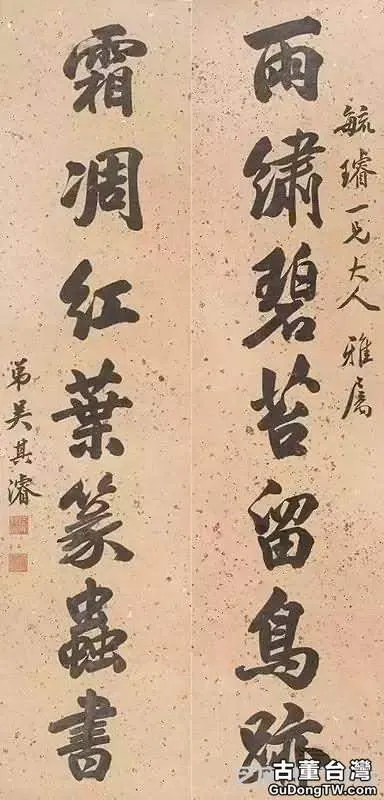 毓璿一兄大人雅屬
雨繡碧苔留鳥跡
霜凋紅葉篆蟲書
弟吳其濬
古董台灣
GuDongTW.com